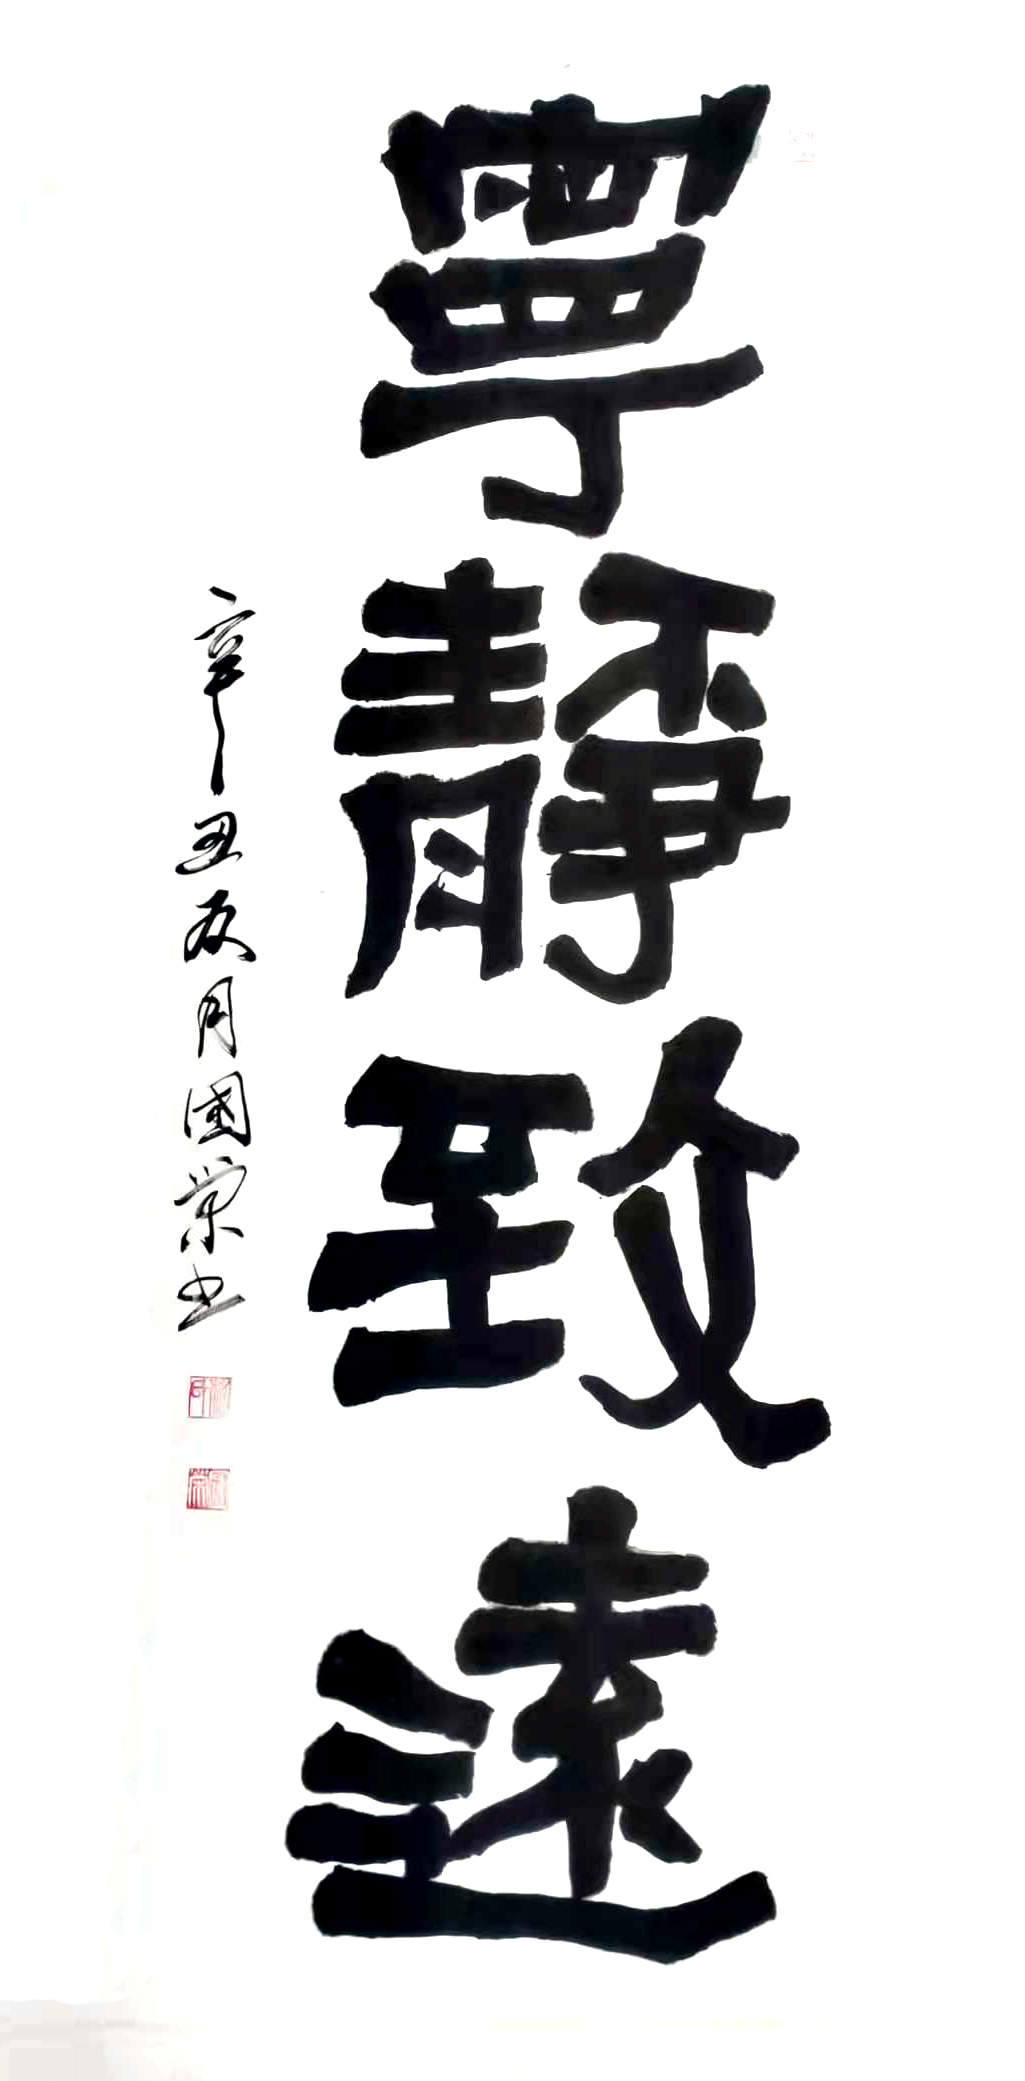 寧靜致遠
辛丑夜月國榮书